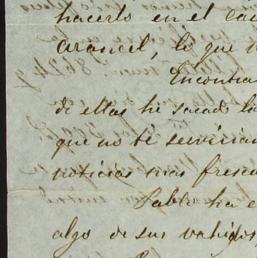 hacerlo en el ca
arancel, lo que
Encontra
de ellas he sacado la
que no te servirian
noticias mas fresc
Pablo ha e
algo de sus vahidos,